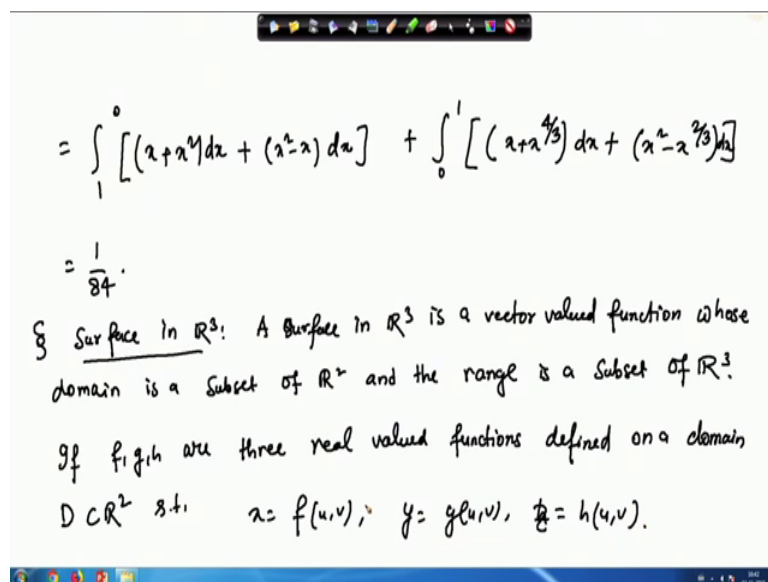 = ∫₁⁰ [(x+x⁴)dx + (x²-x) dx] + ∫₀¹ [(x+x^{4/3}) dx + (x²-x^{2/3})dx]
= 1/84 .
§ Surface in ℝ³: A Surface in ℝ³ is a vector valued function whose
domain is a subset of ℝ² and the range is a subset of ℝ³.
If f, g, h are three real valued functions defined on a domain
D⊂ℝ² s.t. x= f(u,v), y= g(u,v), z= h(u,v).